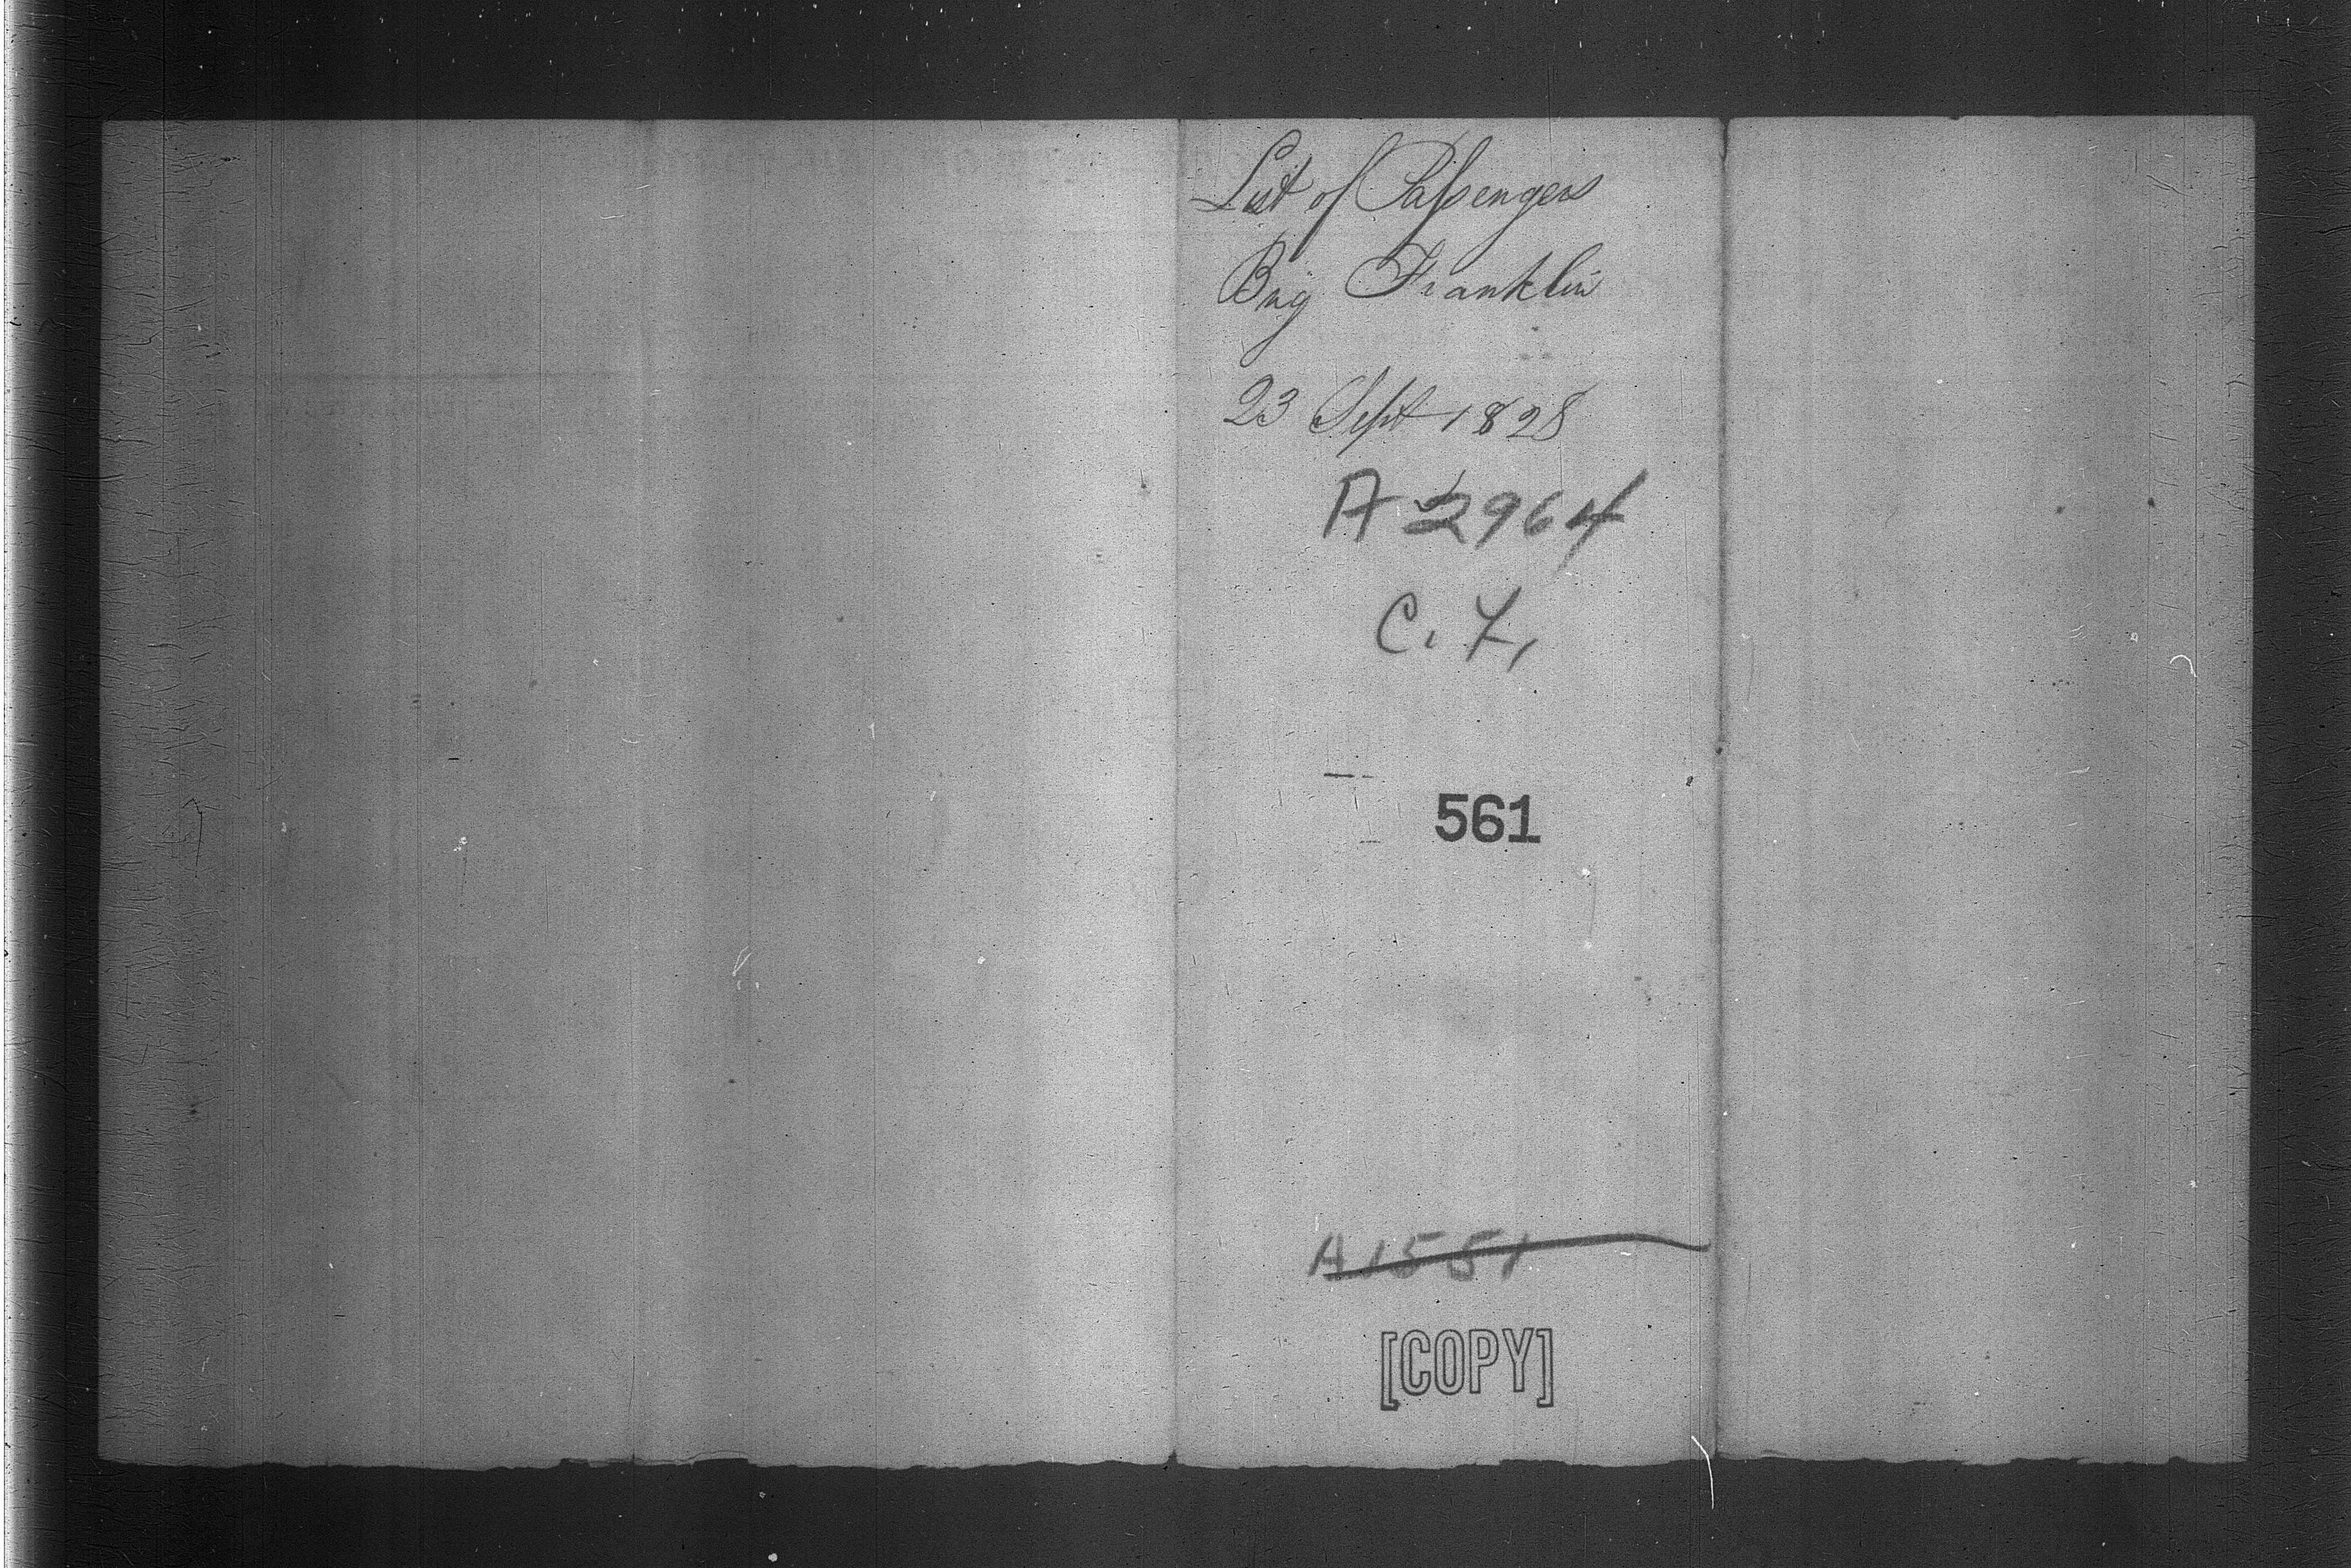 List of Passengers
Brig Franklin
23 Sept 1828
A 2964
C. F.
561
A 1551
[COPY]